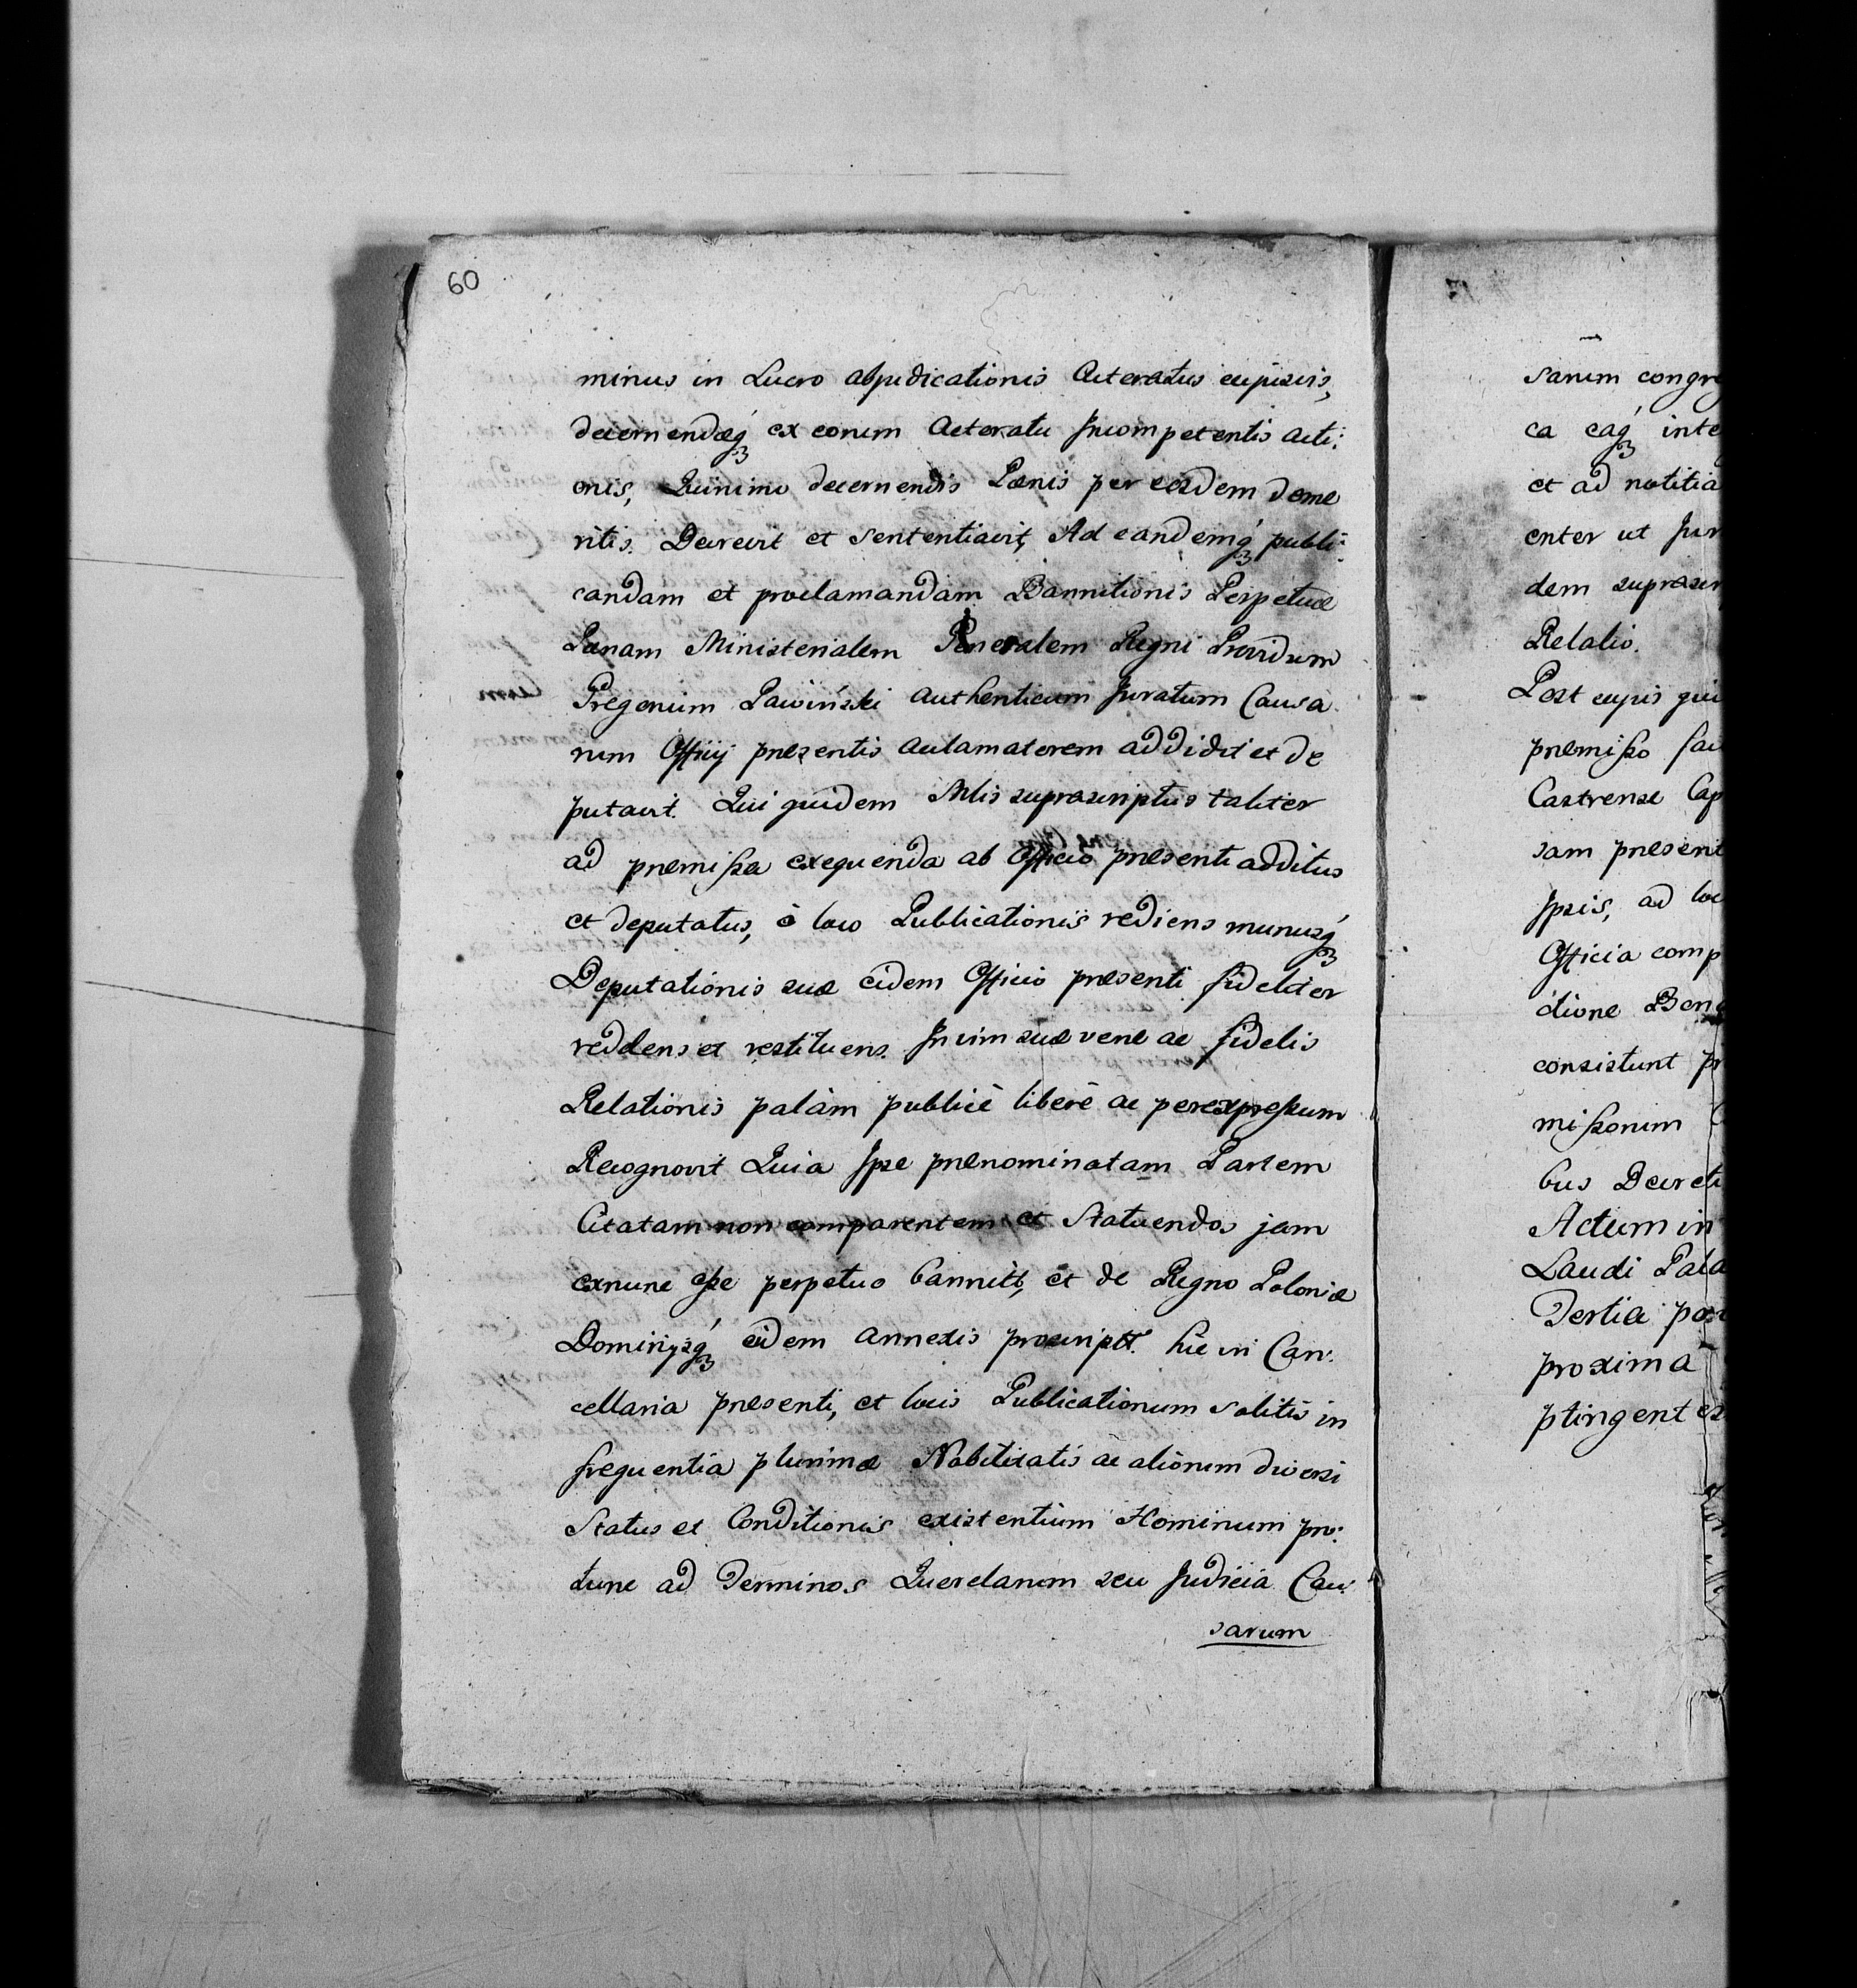 60
minus in Lucro abjudicationis Actoratus cujusvis,
decernendæq́ꝫ ex eorum Actoratu Incompetentis Acti:
onis, Quinimo decernendis Pænis per eosdem deme
ritis. Decrevit et Sententiavit, Ad eandemq́ꝫ publi:
candam et proclamandam Bannitionis Perpetuæ
Pænam Ministerialem Generalem Regni Providum
Gregorium Pawiński Authenticum Juratum Causa
rum Officij præsentis Aclamatorem addidit et de
putavit. Qui quidem Mlis suprascriptus taliter
ad præmissa exequenda ab Officio præsenti additus
et deputatus, à loco Publicationis rediens munusq́ꝫ
Deputationis suæ eidem Officio præsenti fideliter
reddens et restituens. In vim suæ veræ ac fidelis
Relationis palàm publicè liberè ac per expressum
Recognovit Quia Ipse prænominatam Partem
Citatam non comparentem et Statuendos jam
exnunc esse perpetuo bannitt, et de Regno Poloniæ
Dominijsq́ꝫ eidem annexis proscriptt. hic in Can:
cellaria præsenti, et locis Publicationum solitis in
frequentia plurimæ Nobilitatis ac aliorum diversi
Status et Conditionis existentium Hominum pro:
tunc ad Terminos Querelarum seu Judicia Cau:
sarum
sarum congre
ca eaq́ꝫ inte
et ad notitia
enter ut Jur
dem suprascr
Relatio.
Post cujus qui
præmisso fac
Castrense Cap
sam præsent
Ipsis, ad loc
Officia comp
ditione Bon
consistunt pr
missorum
bus Decreti
Actum in
Laudi Pala
Tertia pos
proxima
ptingentes